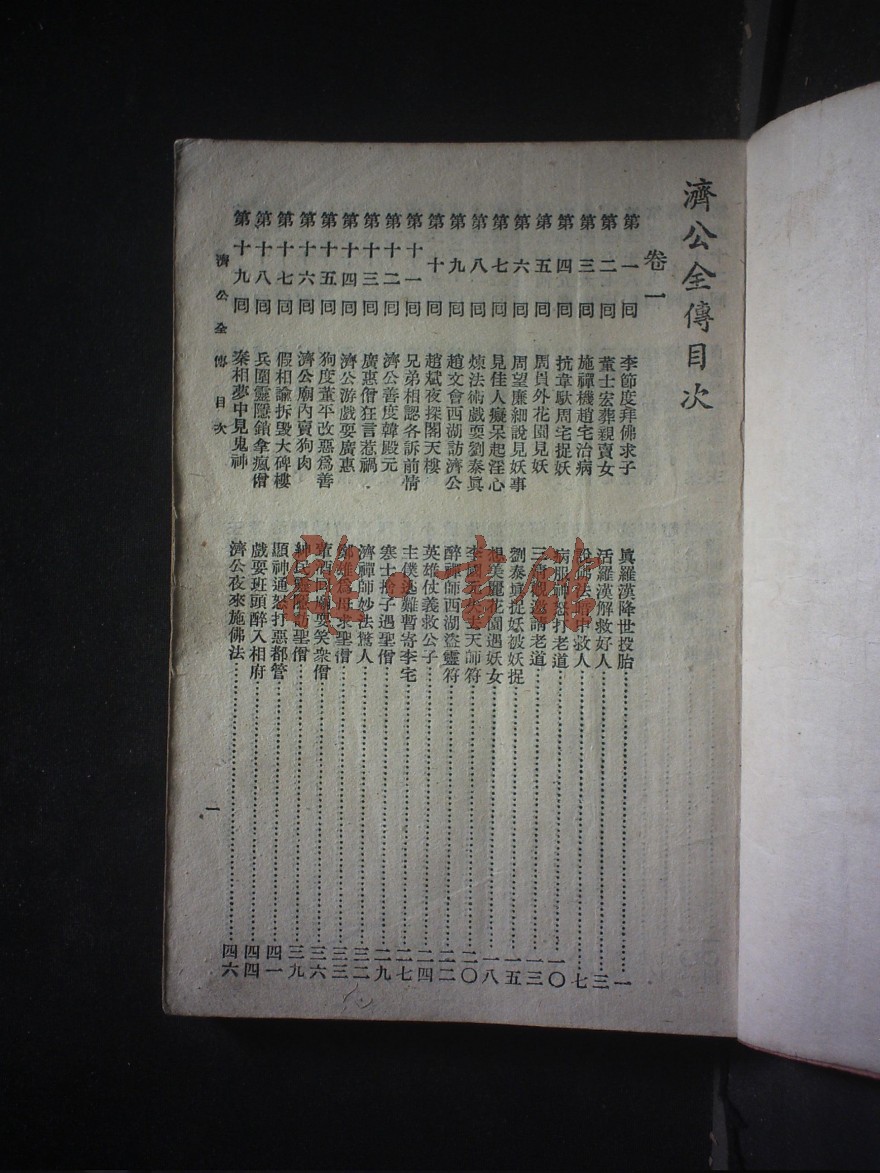 濟公全傳目次
卷一
第一回 李節度拜佛求子 真羅漢降世投胎 一
第二回 董士宏葬親賣女 活羅漢解救好人 三
第三回 施禪機趙宅治病 佛法暗中救人 七
第四回 抗韋馱周宅捉妖 病服神怒打老道 一〇
第五回 周員外花園見妖 三清觀邀請老道 一三
第六回 周望廉細說見妖事 劉泰真捉妖被妖捉 一五
第七回 見佳人癡呆起淫心 想美麗花園遇妖女 一八
第八回 煉法術戲耍劉泰真 李國元失去天師符 二〇
第九回 趙文會西湖訪濟公 醉禪師西湖盜靈符 二二
第十回 趙斌夜探閣天樓 英雄仗義救公子 二四
第十一回 兄弟相認各訴前情 主僕逃難暫寄李宅 二七
第十二回 濟公善度韓殿元 寒士捨子遇聖僧 二九
第十三回 廣惠僧狂言惹禍 濟禪師妙法驚人 三二
第十四回 濟公游戲耍廣惠 鄭雄為母求聖僧 三三
第十五回 狗度董平改惡為善 回廟耍笑眾僧 三六
第十六回 濟公廟內賣狗肉 聖僧 三九
第十七回 假相諭拆毀大碑樓 顯神通怒打惡都管 四一
第十八回 兵圍靈隱鎖拿瘋僧 戲耍班頭醉入相府 四四
第十九回 秦相夢中見鬼神 濟公夜來施佛法 四六
濟公全傳 目次
一